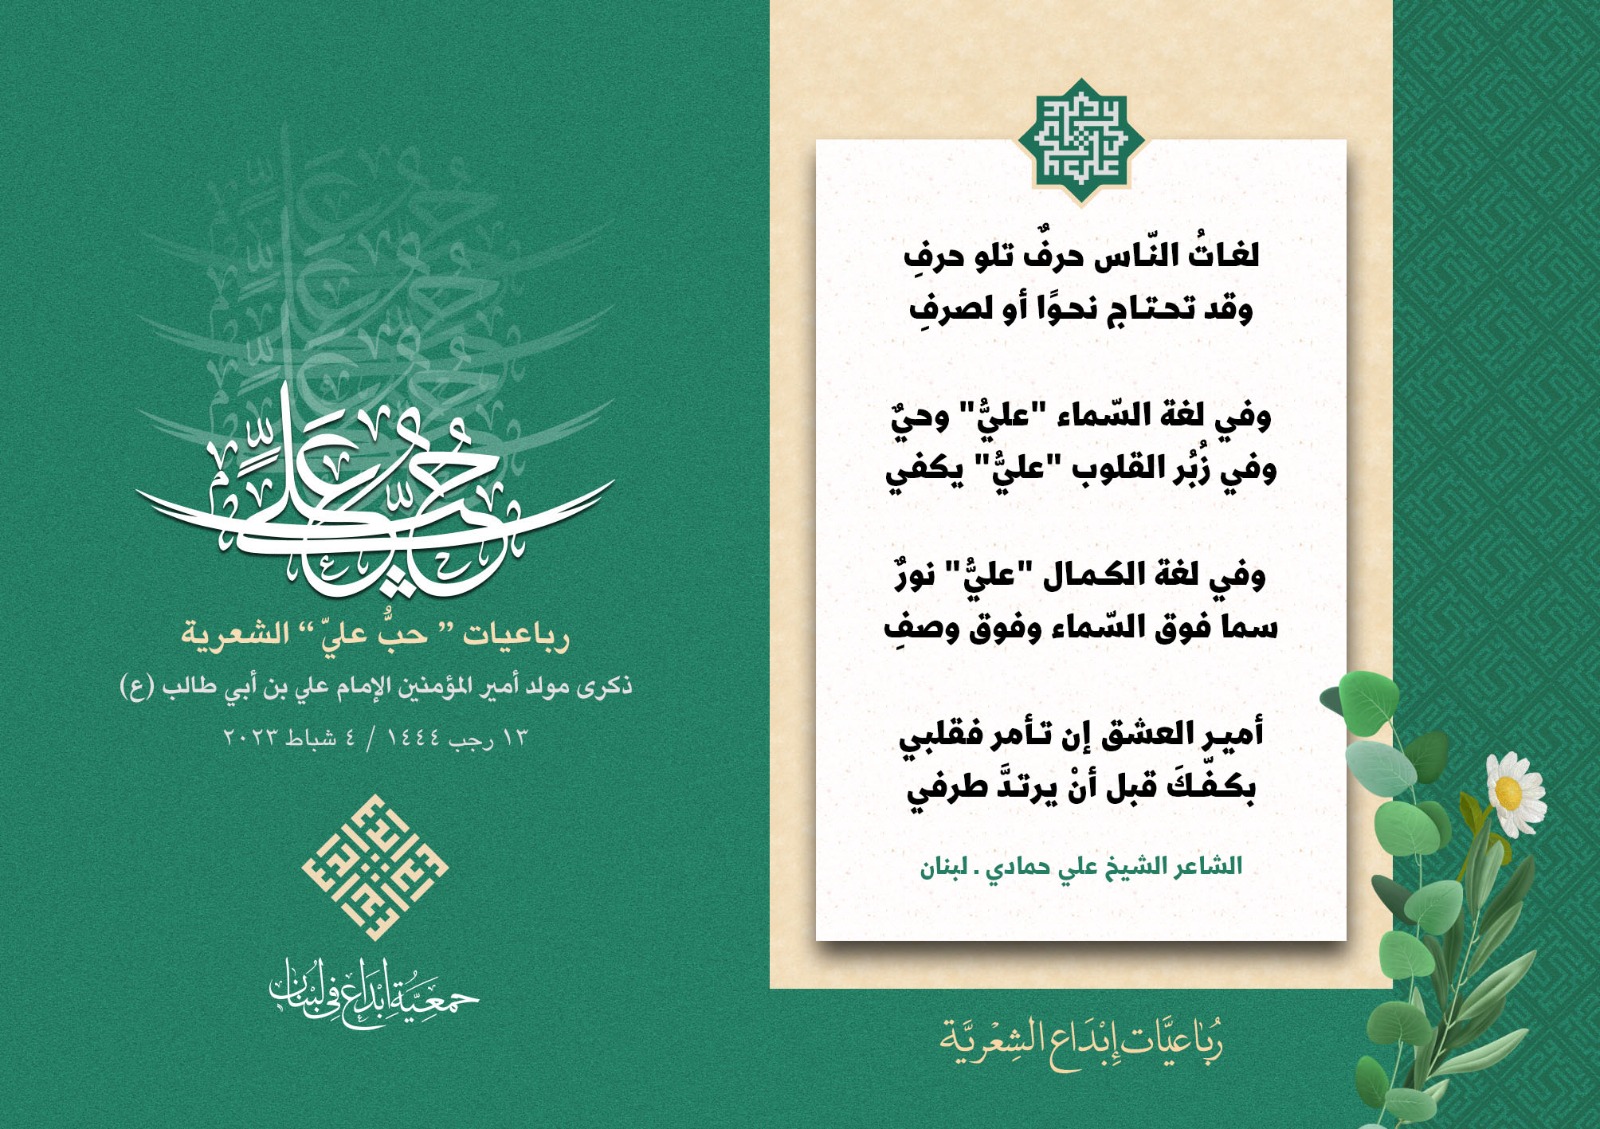 لغاتُ النّاس حرفٌ تلو حرفِ
وقد تحتاج نحوًا أو لصرفِ
وفي لغة السّماء "عليُّ" وحيٌ
وفي زُبُر القلوب "عليُّ" يكفي
وفي لغة الكمال "عليُّ" نورٌ
سما فوق السّماء وفوق وصفِ
أمير العشق إن تأمر فقلبي
بكفّكَ قبل أنْ يرتدَّ طرفي
الشاعر الشيخ علي حمادي . لبنان
رُبَاعيَّات إِبْدَاع الشِعْريَّة
حُبُّ عَلِيٍّ
رباعيات ” حبُّ عليّ “ الشعرية
ذكرى مولد أمير المؤمنين الإمام علي بن أبي طالب (ع)
١٣ رجب ١٤٤٤ / ٤ شباط ٢٠٢٣
جمعيَّة إبْدَاع في لبْنان